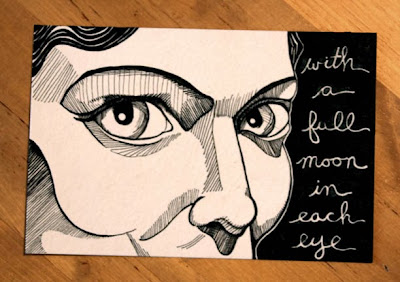 with
a
full
moon
in
each
eye